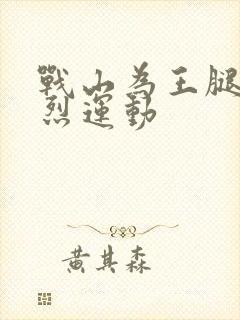 戰山為王腿
烈運動
黃其森